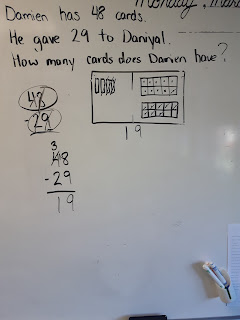 Monday, Mar
Damien has 48 cards.
He gave 29 to Daniyal.
How many cards does Damien have?
48
-29
19
3
48
-29
19